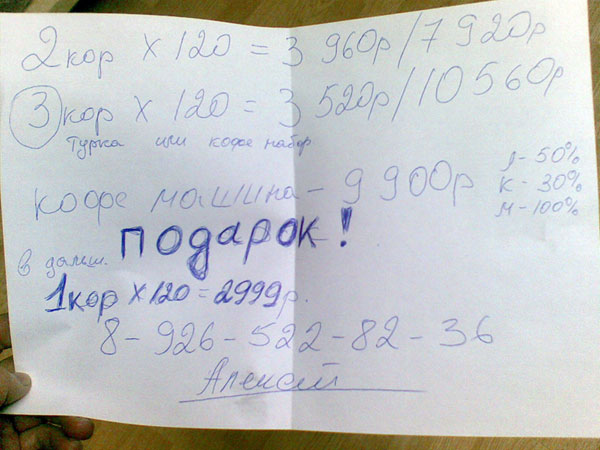 2 кор x 120 = 3 960р/7 920р
3 кор x 120 = 3 520р/10 560р
турка или кофе набор
кофе машина - 9 900р
д - 50%
к - 30%
м - 100%
ПОДАРОК!
в дальш.
1 кор x 120 = 2999р.
8-926-522-82-36
Алексей